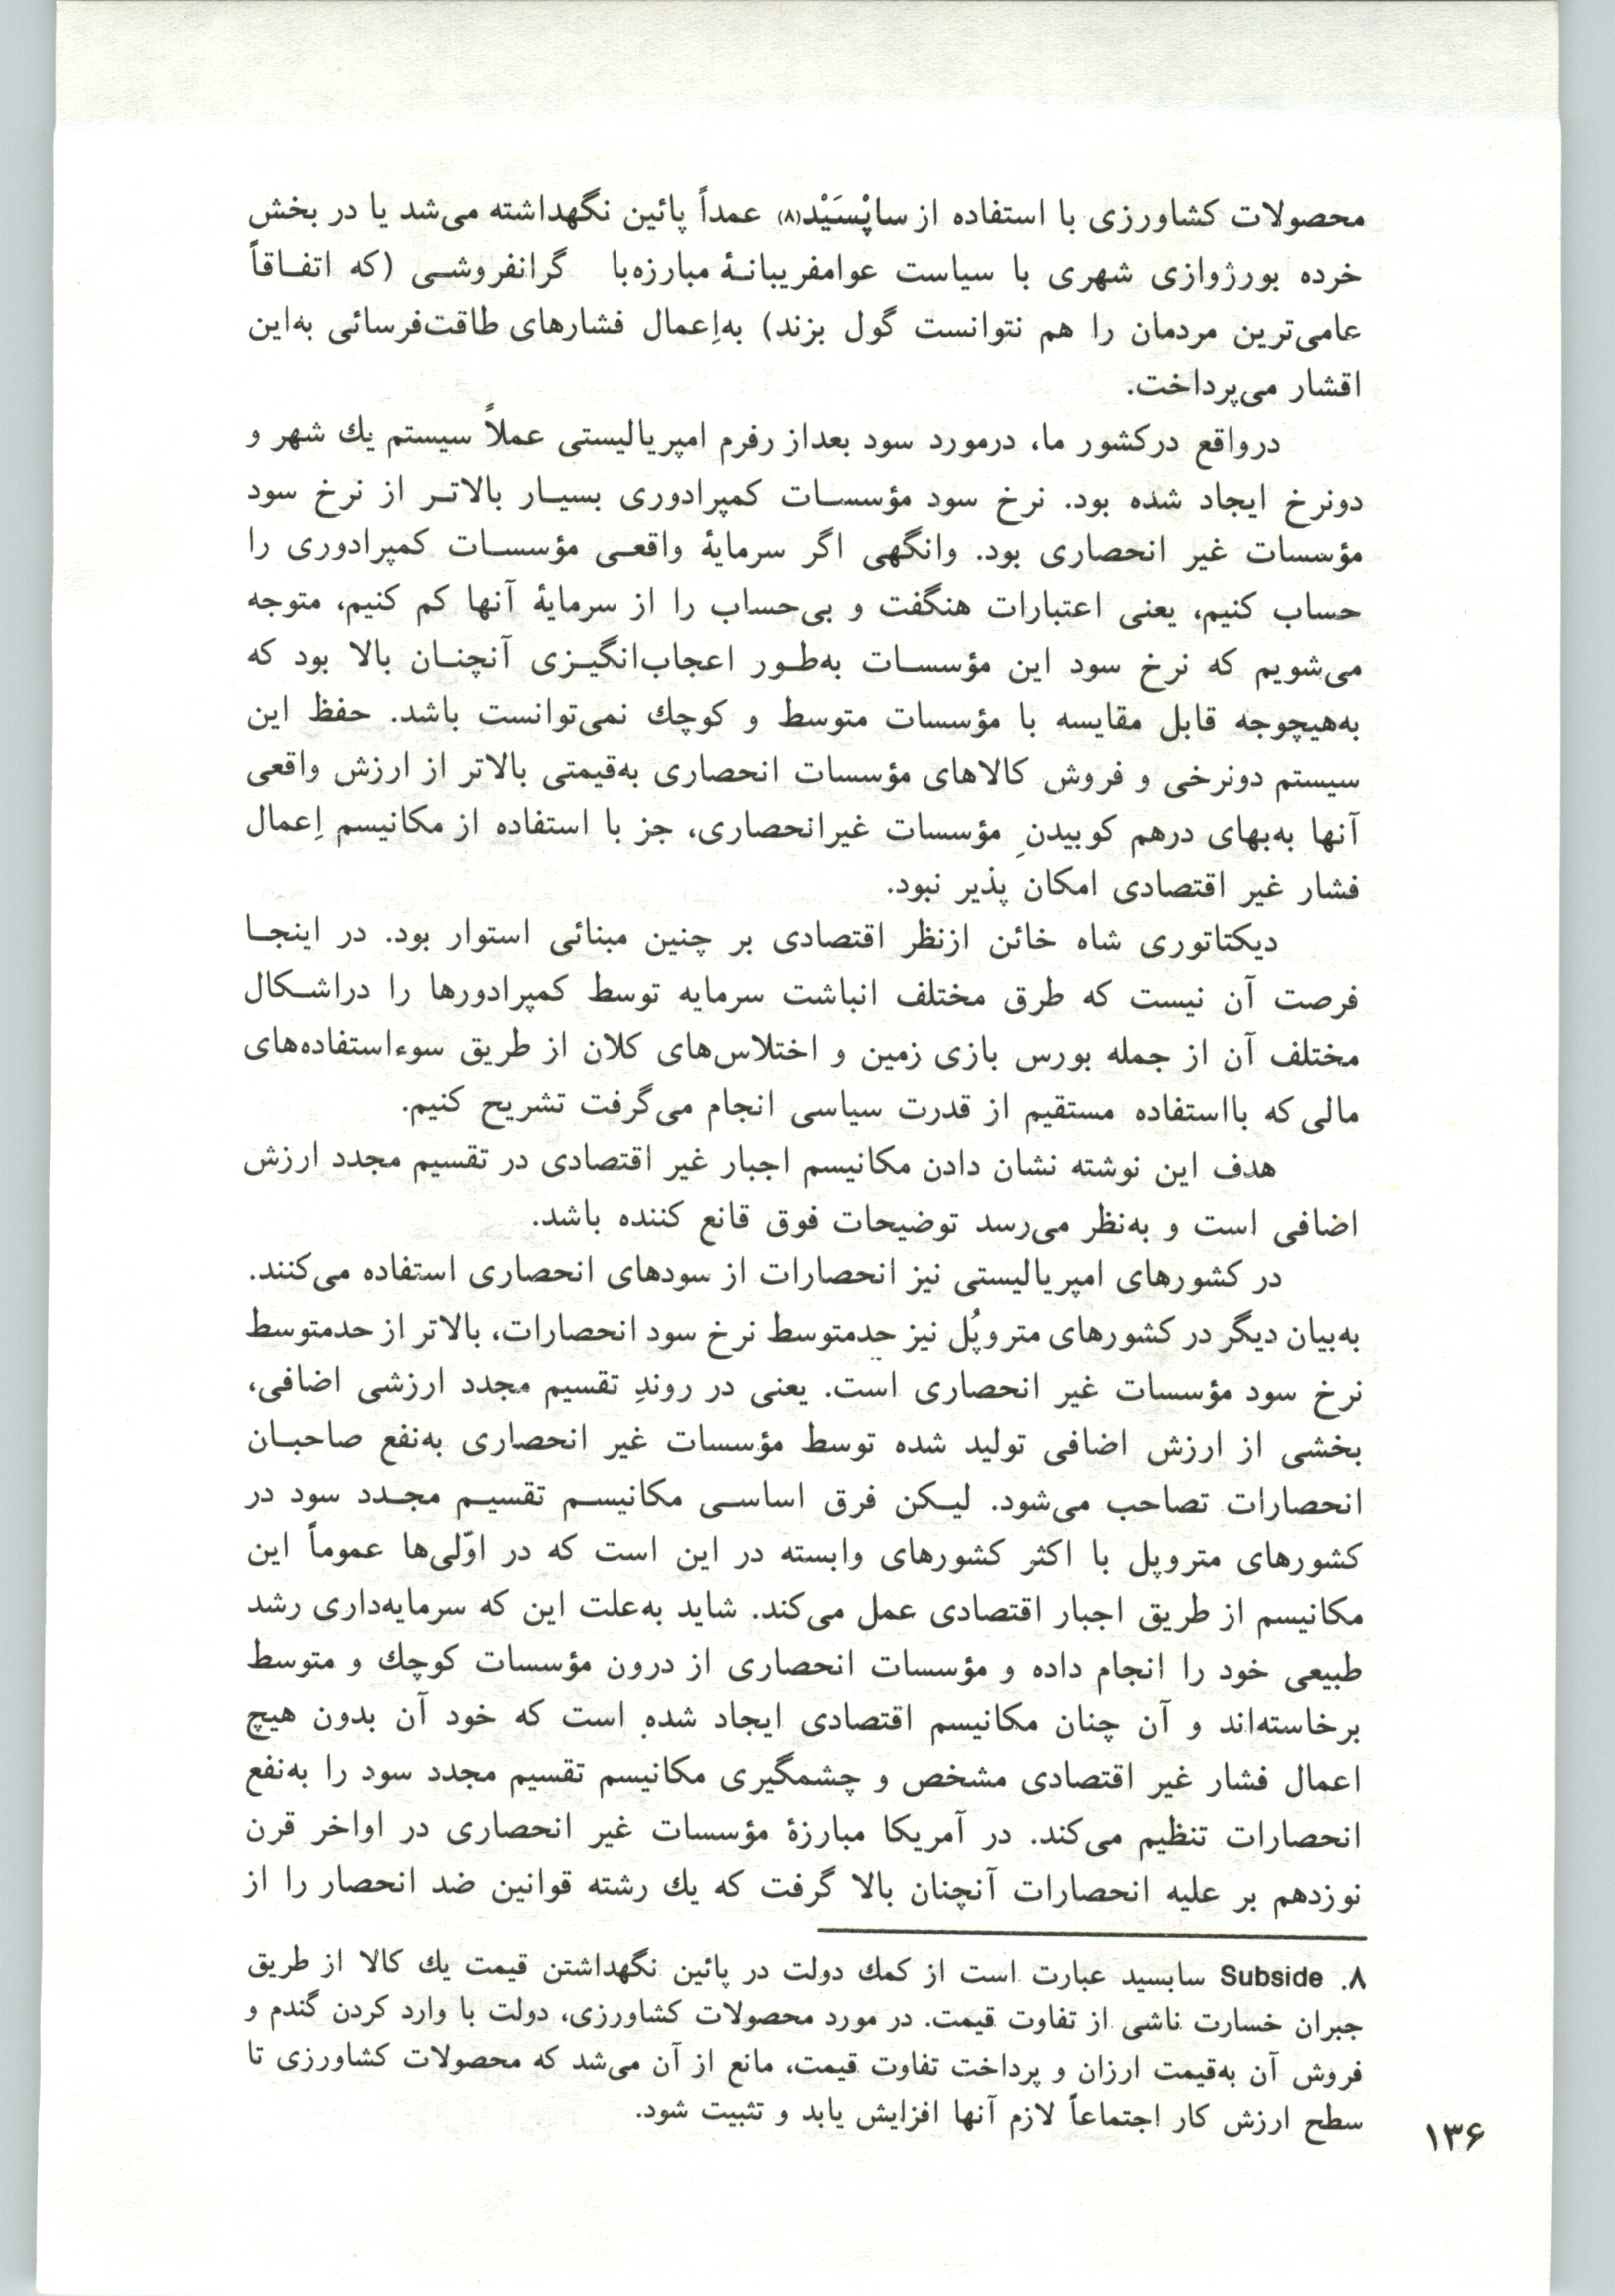 محصولات کشاورزی با استفاده از ساپْسَیْد(۸) عمداً پائین نگهداشته می‌شد یا در بخش
خرده بورژوازی شهری با سیاست عوامفریبانهٔ مبارزه‌با گرانفروشی (که اتفاقاً
عامی‌ترین مردمان را هم نتوانست گول بزند) به‌اِعمال فشارهای طاقت‌فرسائی به‌این
اقشار می‌پرداخت.
درواقع درکشور ما، درمورد سود بعداز رفرم امپریالیستی عملاً سیستم یك شهر و
دونرخ ایجاد شده بود. نرخ سود مؤسسات کمپرادوری بسیار بالاتر از نرخ سود
مؤسسات غیر انحصاری بود. وانگهی اگر سرمایهٔ واقعی مؤسسات کمپرادوری را
حساب کنیم، یعنی اعتبارات هنگفت و بی‌حساب را از سرمایهٔ آنها کم کنیم، متوجه
می‌شویم که نرخ سود این مؤسسات به‌طور اعجاب‌انگیزی آنچنان بالا بود که
به‌هیچوجه قابل مقایسه با مؤسسات متوسط و کوچك نمی‌توانست باشد. حفظ این
سیستم دونرخی و فروش کالاهای مؤسسات انحصاری به‌قیمتی بالاتر از ارزش واقعی
آنها به‌بهای درهم کوبیدنِ مؤسسات غیرانحصاری، جز با استفاده از مکانیسم اِعمال
فشار غیر اقتصادی امکان پذیر نبود.
دیکتاتوری شاه خائن ازنظر اقتصادی بر چنین مبنائی استوار بود. در اینجا
فرصت آن نیست که طرق مختلف انباشت سرمایه توسط کمپرادورها را دراشکال
مختلف آن از جمله بورس بازی زمین و اختلاس‌های کلان از طریق سوءاستفاده‌های
مالی که بااستفاده مستقیم از قدرت سیاسی انجام می‌گرفت تشریح کنیم.
هدف این نوشته نشان دادن مکانیسم اجبار غیر اقتصادی در تقسیم مجدد ارزش
اضافی است و به‌نظر می‌رسد توضیحات فوق قانع کننده باشد.
در کشورهای امپریالیستی نیز انحصارات از سودهای انحصاری استفاده می‌کنند.
به‌بیان دیگر در کشورهای متروپُل نیز حدمتوسط نرخ سود انحصارات، بالاتر از حدمتوسط
نرخ سود مؤسسات غیر انحصاری است. یعنی در روندِ تقسیم مجدد ارزشی اضافی،
بخشی از ارزش اضافی تولید شده توسط مؤسسات غیر انحصاری به‌نفع صاحبان
انحصارات تصاحب می‌شود. لیکن فرق اساسی مکانیسم تقسیم مجدد سود در
کشورهای متروپل با اکثر کشورهای وابسته در این است که در اوّلی‌ها عموماً این
مکانیسم از طریق اجبار اقتصادی عمل می‌کند. شاید به‌علت این که سرمایه‌داری رشد
طبیعی خود را انجام داده و مؤسسات انحصاری از درون مؤسسات کوچك و متوسط
برخاسته‌اند و آن چنان مکانیسم اقتصادی ایجاد شده است که خود آن بدون هیچ
اعمال فشار غیر اقتصادی مشخص و چشمگیری مکانیسم تقسیم مجدد سود را به‌نفع
انحصارات تنظیم می‌کند. در آمریکا مبارزهٔ مؤسسات غیر انحصاری در اواخر قرن
نوزدهم بر علیه انحصارات آنچنان بالا گرفت که یك رشته قوانین ضد انحصار را از
۸. Subside سابسید عبارت است از کمك دولت در پائین نگهداشتن قیمت یك کالا از طریق
جبران خسارت ناشی از تفاوت قیمت. در مورد محصولات کشاورزی، دولت با وارد کردن گندم و
فروش آن به‌قیمت ارزان و پرداخت تفاوت قیمت، مانع از آن می‌شد که محصولات کشاورزی تا
سطح ارزش کار اجتماعاً لازم آنها افزایش یابد و تثبیت شود.
۱۳۶